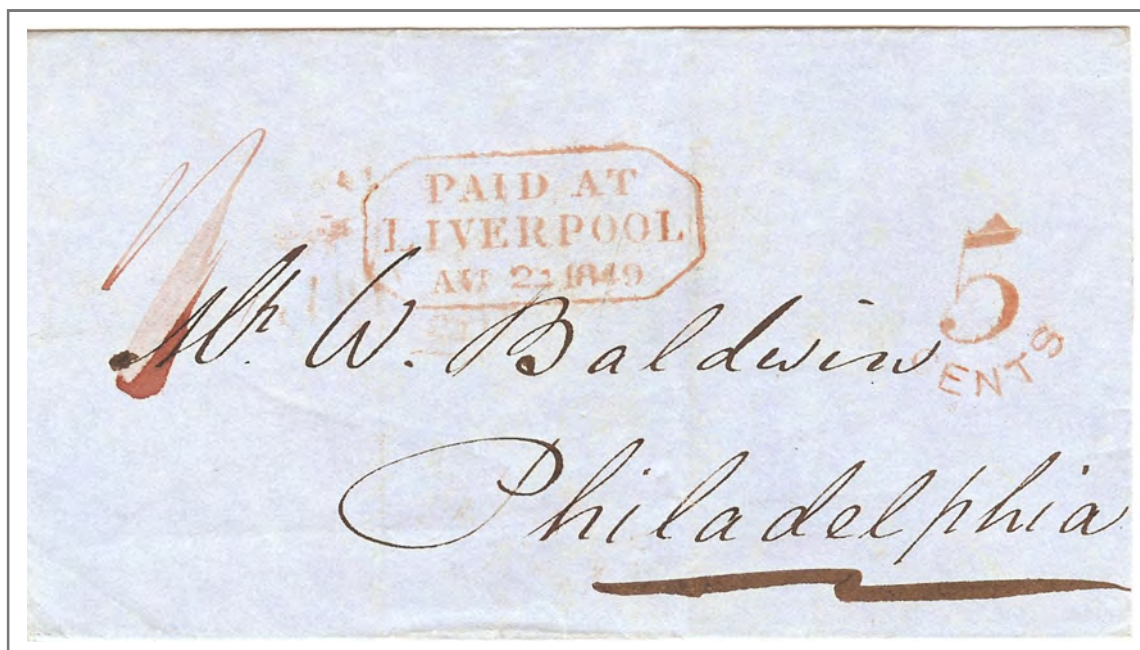 PAID AT
LIVERPOOL
1849
5
CENTS
Mr. W. Baldwin
Philadelphia